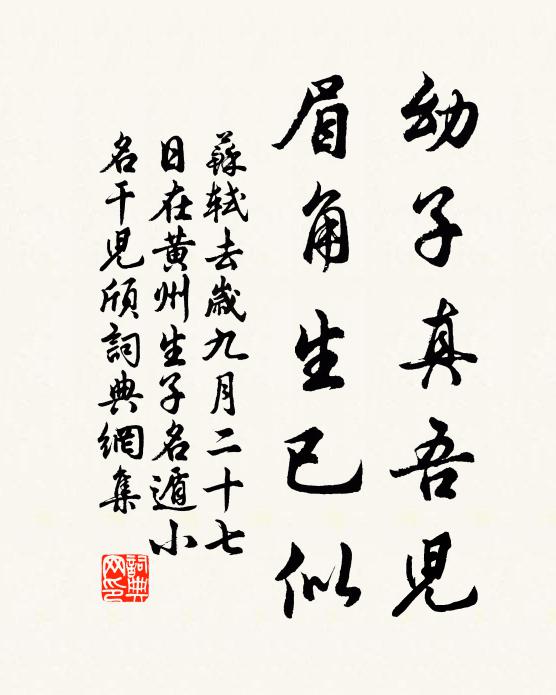 幼子真吾児
眉角生已似
蘇軾去歲九月二十七
日在黄州生子名遁小
名干児頎詞典網集
詞典网印